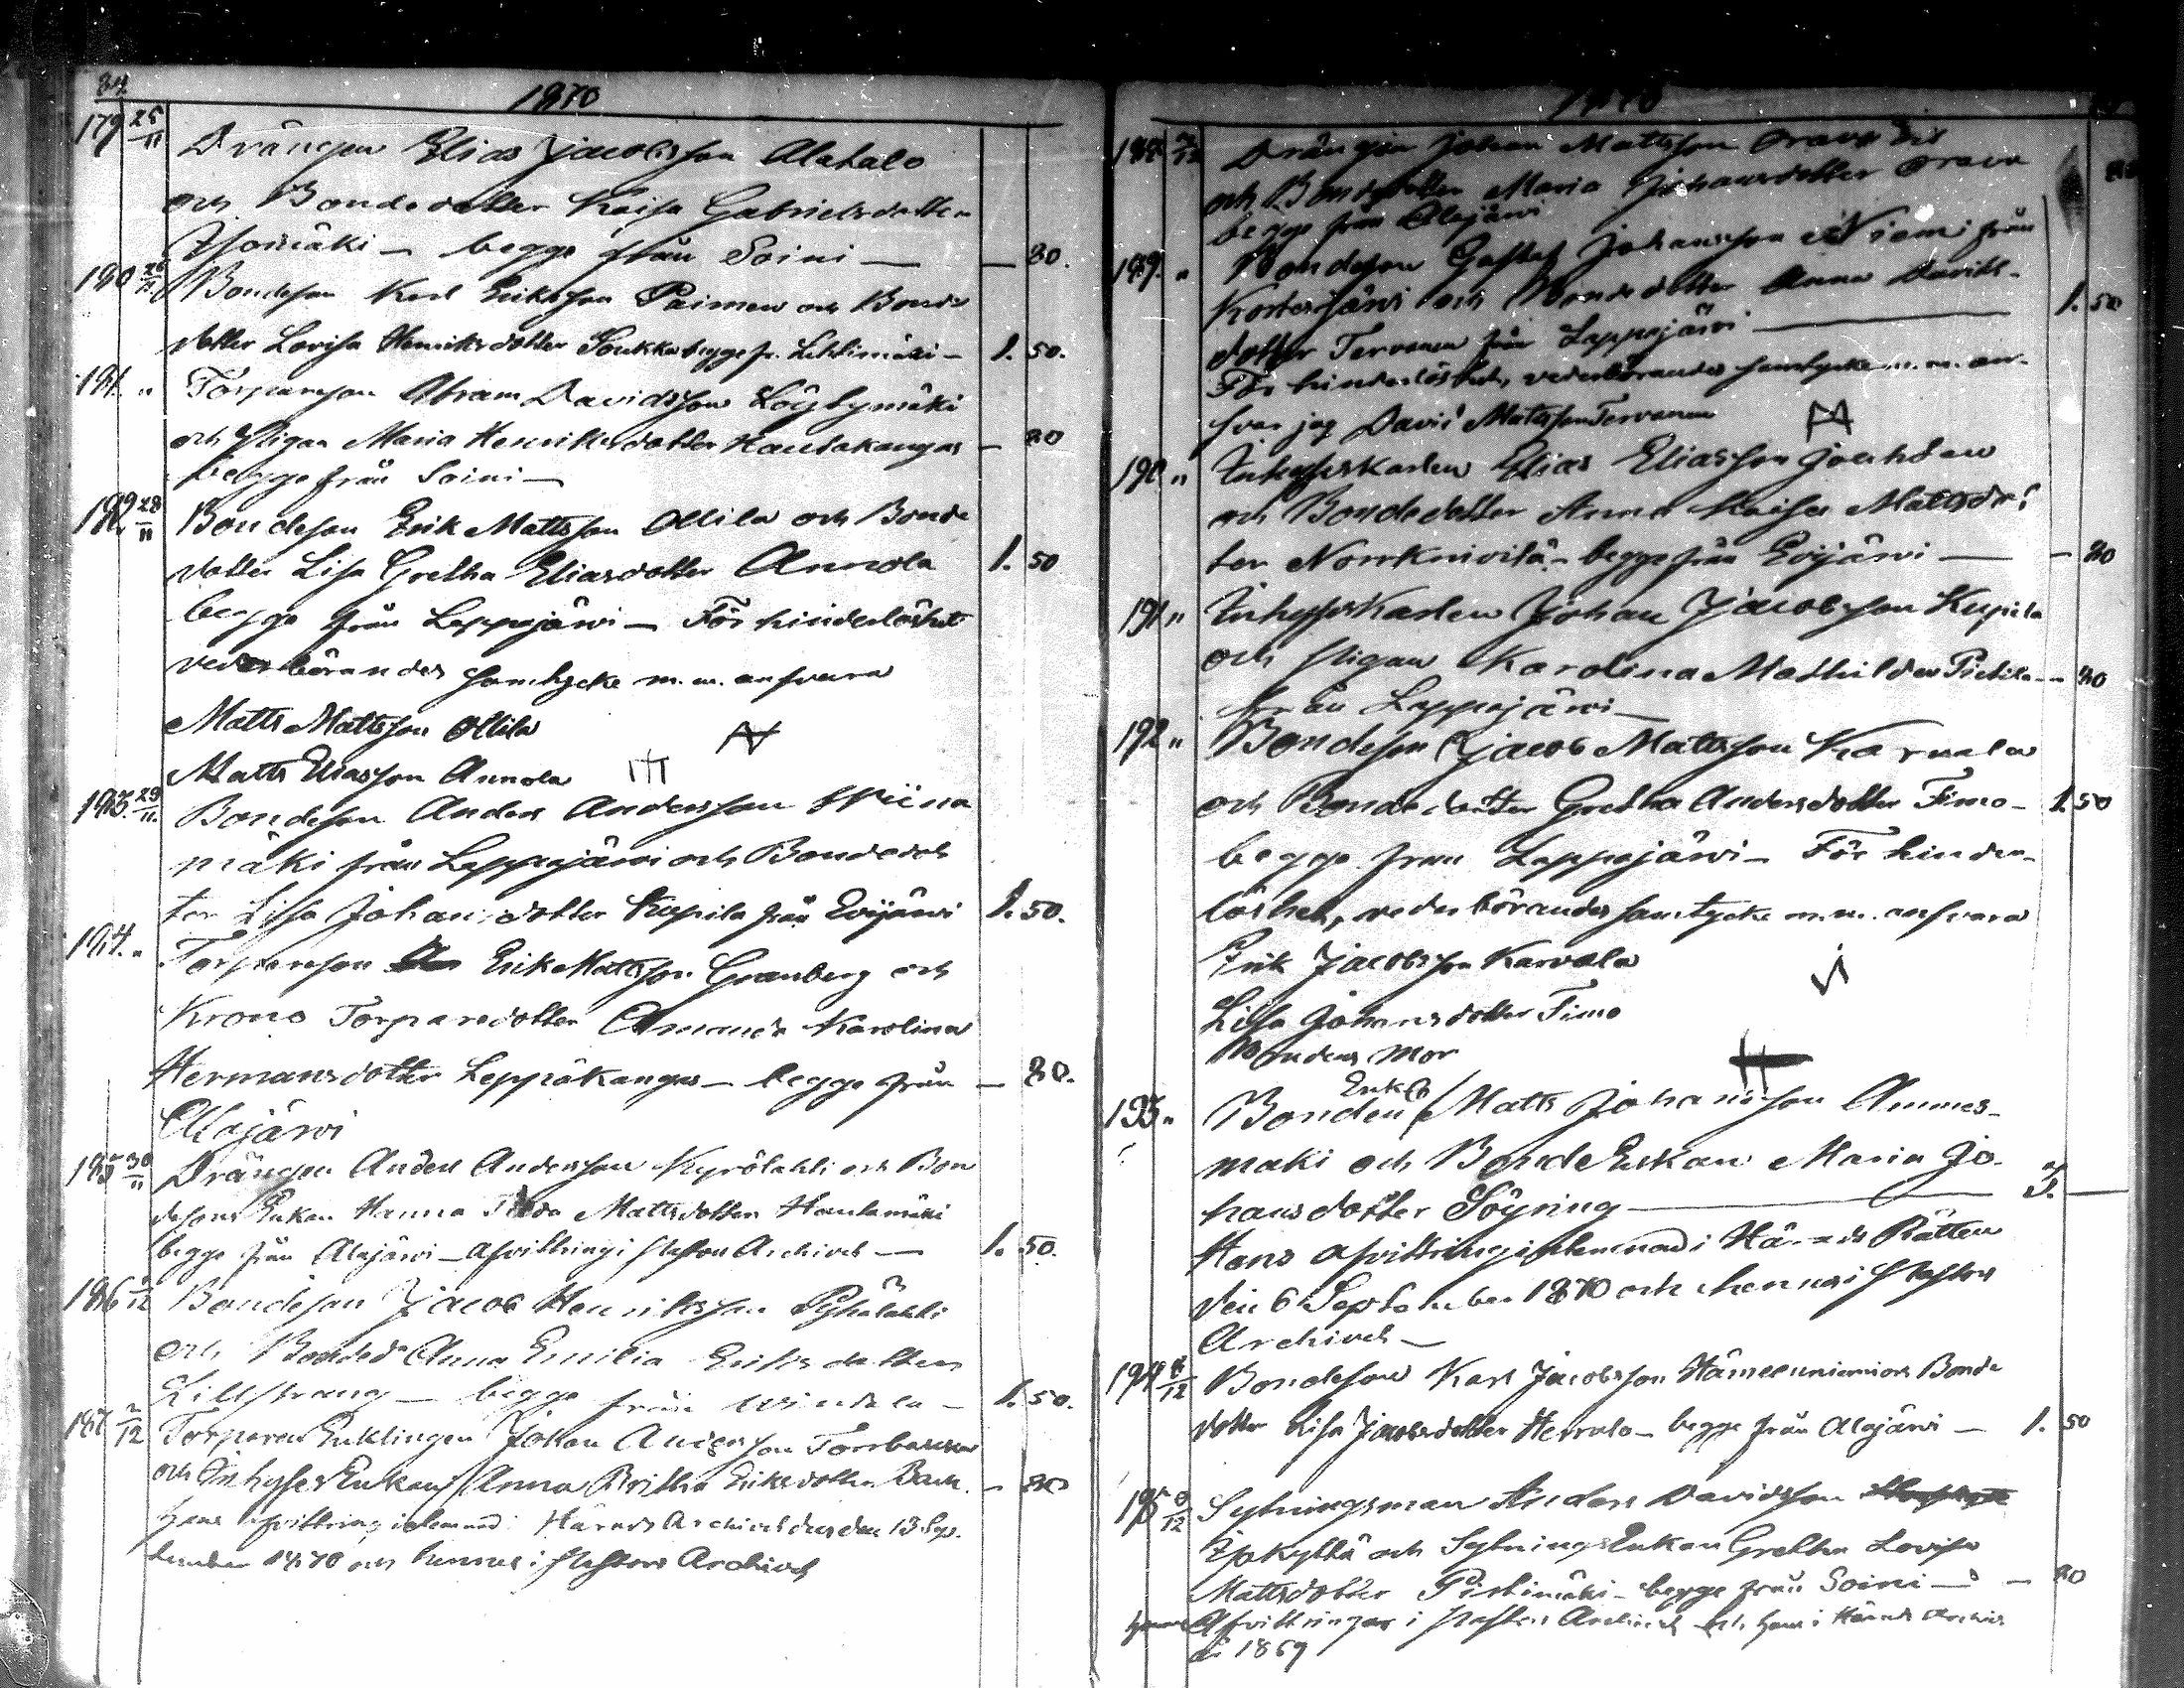 84
1870
179 25/11 Drängen Elias Jacobsson Alatalo
och Bondedotter Kaisa Gabrielsdotter
Isomäki — begge från Soini — — 80.
180 26/11 Bondeson Karl Eriksson Paimen och Bonde
dotter Lovisa Henriksdotter Soukka begge fr. Lehtimäki — 1. 50.
181. " Torpareson Abram Davidsson Löytymäki
och Pigan Maria Henriksdotter Hautakangas — 80
begge från Soini —
182. 28/11 Bondeson Erik Mattsson Ollila och Bonde
dotter Lisa Gretha Eliasdotter Annola 1. 50
begge från Lappajärvi — För hinderlöshet
vederbörandes samtycke m.m. ansvara
Matts Mattsson Ollila
Matts Eliasson Annola
183. 29/11 Bondeson Anders Andersson Wiina
mäki från Lappajärvi och Bondedot
ter Lisa Johansdotter Kupila från Evijärvi 1. 50.
184. " Torpareson Erik Mattsson Granberg och
Krono Torparedotter Amanda Karolina
Hermansdotter Leppäkangas — begge från — 80.
Alajärvi
185 30/11 Drängen Anders Andersson Kyrölahti och Bon
desons Enkan Hanna Mattsdotter Hautamäki
begge från Alajärvi — afvittring i Pastors Archivet — 1. 50.
186 /12 Bondeson Jacob Henriksson Pyhälahti
och Bonded. Anna Emilia Eriksdotter
Lillstrang — begge från Windala — 1. 50.
187 2/12 Torpare Enklingen Johan Andersson
och Inhyses Enkan Anna Britha Eriksdotter Back — 80
hans afvittring inlemnad i Härads Archivet den 13 Sep-
tember 1870 och hennes i Pastors Archivet
1870
188 2/12 Drängen Johan Mattsson Orava
och Bondedotter Maria Johansdotter Orava 80
begge från Alajärvi
189. " Bondeson Gustaf Johansson Niemi från
Kortesjärvi och Bondedotter Anna Davids-
dotter Tervonen från Lappajärvi — 1. 50
För hinderlöshet, vederbörandes samtycke m.m. an-
svar jag David Mattsson Tervonen
190 " Inhyseskarlen Elias Eliasson
och Bondedotter Anna Kaisa Mattsdot
ter — begge från Evijärvi — — 80
191 " Inhyseskarlen Johan Jacobsson Kupila
och Pigan Karolina Mathilda — 80
från Lappajärvi —
192 " Bondeson Jacob Mattsson Karvala
och Bondedotter Gretha Andersdotter Timo — 1. 50
begge från Lappajärvi — För hinder-
löshet, vederbörandes samtycke m.m. ansvara
Erik Jacobsson Karvala
Lisa Johansdotter Timo
Bondens Mor
Enkl.
193 " Bonden Matts Johansson Ammes-
mäki och Bonde Enkan Maria Jo-
hansdotter Söyring — 3. —
Hans afvittring inlemnad i Härads Rätten
den 6 September 1870 och hennes i Pastors
Archivet —
194 /12 Bondeson Karl Jacobsson Hämeenniemi och Bonde
dotter Lisa Jacobsdotter Herrala — begge från Alajärvi — 1. 50
195 /12 Sytningsman Anders Davidsson
Ipykyttä och Sytnings Enkan Gretha Lovisa
Mattsdotter — begge från Soini — — 80
hennes Afvittringar i Pastors Archivet och hans i Härads Archiv
år 1869